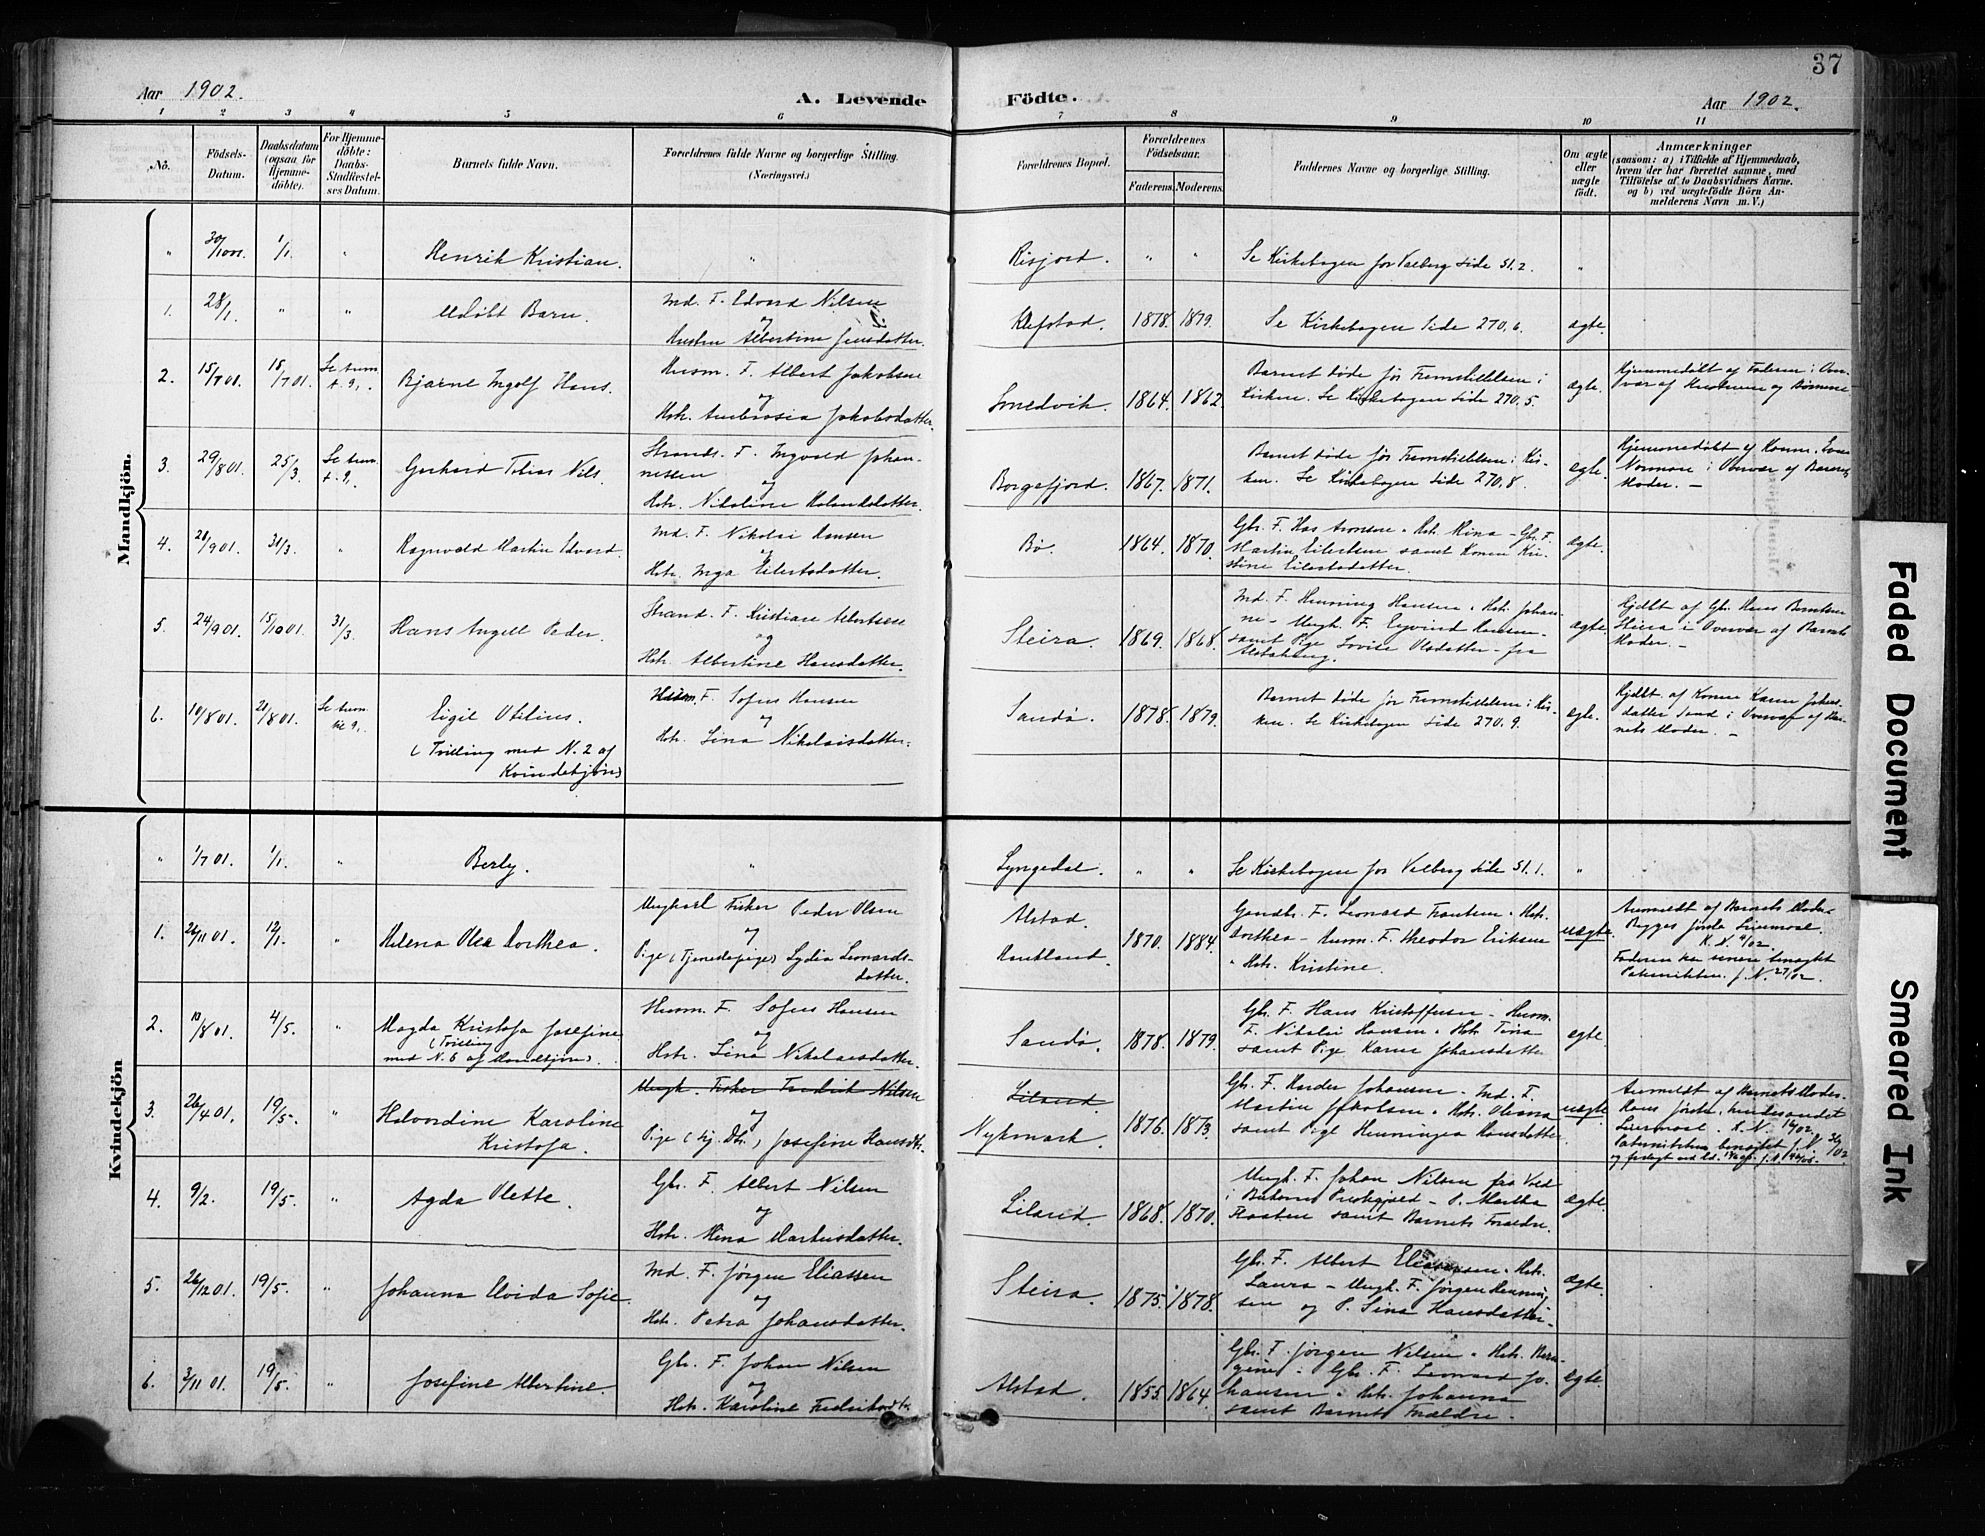 37
Aar 1902.
A. Levende Födte.
Aar 1902.
1 2 3 4 5 6 7 8 9 10 11
No.
Födsels-
Datum.
Daabsdatum
(ogsaa for
Hjemme-
döbte).
For Hjemme-
döbte:
Daabs-
Stadfæstel-
ses Datum.
Barnets fulde Navn.
Forældrenes fulde Navne og borgerlige Stilling.
(Næringsvei.)
Forældrenes Bopæl.
Forældrenes
Födselsaar.
Faderens. Moderens.
Faddernes Navne og borgerlige Stilling.
Om ægte
eller
uægte
födt.
Anmærkninger
(saasom: a) i Tilfælde af Hjemmedaab,
hvem der har forrettet samme, med
Tilföielse af to Daabsvidners Navne.
og b) ved uægtefödte Börn An-
melderens Navn m. V.)
Mandkjön.
" 30/10 01. 1/1. " Henrik Kristian. " Risjord. " " Se Kirkebogen for Valberg side 51.2. "
1. 28/1. " " Udøbt Barn.
Md. F. Edvard Nilsen
og
Hustru Albertine Jensdatter.
Klefstad. 1878. 1879. Se Kirkebogen Side 270.6. ægte.
2. 15/7 01. 18/7 01. Se rum
t. 9. Bjarne Ingolf Hans.
Husm. F. Albert Jakobsen
og
Hstr. Ambrosia Jakobsdatter.
Smedvik. 1864. 1862.
Barnet døde før Fremstillelsen i
Kirken. Se Kirkebogen Side 270.5.
ægte.
Hjemmedøbt af Faderen i Over-
vær af Hustruen og Børnene
3. 29/8 01. 25/3. Se rum
t. 9. Gerhard Tobias Nils.
Strands. F. Ingvald Johan-
nessen
og
Hstr. Nikoline Rolandsdatter.
Borgefjord. 1867. 1871.
Barnet døde før Fremstillelsen i Kir-
ken. Se Kirkebogen Side 270.8.
ægte.
Hjemmedøbt af Konen
Normann i Overvær af Barnets
Moder. —
4. 28/9 01. 31/3. " Ragnvald Martin Edvard.
Md. F. Nikolai Hansen
og
Hstr. Inga Eilertsdatter.
Bø. 1864. 1870.
Gbr. F. Hans Aronsen, Hstr. Mina – Gbr. F.
Martin Eilertsen samt Konen Kri-
stine Eilertsdatter.
ægte.
5. 24/9 01. 15/10 01. 31/3. Hans Angell Peder.
Strand. F. Kristian Albertsen
og
Hstr. Albertine Hansdatter.
Steira. 1869. 1868.
Md. F. Henning Hansen, Hstr. Johan-
ne – Ungk. F. Eyvind Hansen –
samt Pige Lovise Olsdatter – fra
ægte.
Hjdbt af Gbr. Hans Berntsen
Steira i Overvær af Barnets
Moder. —
6. 10/8 01. 21/8 01. Se rum
9. Eigil Otelius.
(Tvilling med N. 2 af
Kvindekjøn)
Husm. F. Sofus Hansen
og
Hstr. Lina Nikolaisdatter.
Sandø. 1878. 1879.
Barnet døde før Fremstillelsen i Kir-
ken. Se Kirkebogen Side 270.9.
ægte.
Hjdbt. af Konen Karen Johans-
datter Sand i Overvær af Bar-
nets Moder. —
Kvindekjön
" 1/7 01. 1/1. " Berly. " Lyngedal. " " Se Kirkebogen for Valberg side 51.1. "
1. 26/11 01. 12/1. " Helena Olea Dorthea.
Ungkarl Fisker Peder Olsen
og
Pige (Tjenestepige) Lydia Leonards-
datter.
Alstad.
1870. 1884.
Gaardbr. F. Leonard Frantsen, Hstr.
Dorthea – Husm. F. Theodor Eriksen
" Hstr. Kristine.
uægte.
Anmeldt af Barnets Moder
Begges første Leiermaal.
Faderen har senere benægtet
Paterniteten. J. N. 27/02
2. 10/8 01. 4/5. " Magda Kristofa Josefine
(Tvilling
med N. 6 af Mandkjøn).
Husm. F. Sofus Hansen
og
Hstr. Lina Nikolaisdatter.
Sandø. 1878. 1879.
Gbr. F. Hans Kristoffersen – Husm.
F. Nikolai Hansen, Hstr. Tina
samt Pige Karen Johansdatter
ægte
3. 26/4 01. 19/5. " Halvordine Karoline
Kristofa.
Ungk. Fisker Fredrik Nilsen
og
Pige (hj. Dtr.) Josefine Hansdtr.
Liland.
Nykmark. 1876. 1873.
Gbr. F. Peder Johansen – Md. F.
Martin Jakobsen, Hstr. Olianna
samt Pige Henningea Hansdatter.
uægte
Anmeldt af Barnets Moder.
Hans første, hendes andet
Leiermaal. K. N. 16/02
Paterniteten benægtet J. N. 36/02
4. 9/2. 19/5. " Agda Olette.
Gbr. F. Albert Nilsen
og
Hstr. Mina Martensdatter.
Liland. 1868. 1870.
Ungk. F. Johan Nilsen fra Vold
i Buksnes Prestegjeld – P. Martha
samt Barnets Forældre.
ægte.
5. 26/12 01. 19/5. " Johanna Ovida Sofie.
Md. F. Jørgen Eliassen
og
Hstr. Petra Johansdatter.
Steira. 1875. 1878.
Gbr. F. Albert Eliassen, Hstr.
Laura – Ungk. F. Jørgen Henning-
sen og P. Lina Hansdatter. –
ægte.
6. 3/11 01. 19/5. " Josefine Albertine.
Gbr. F. Johan Nilsen
og
Hstr. Karoline Fredriksdtr.
Alstad. 1855. 1864.
Gbr. F. Jørgen Nilsen, Hstr. Bera-
gine. – Gbr. F. Leonard Jo-
hansen, Hstr. Johanna
samt Barnets Forældre. –
ægte.
Faded Document
Smeared Ink